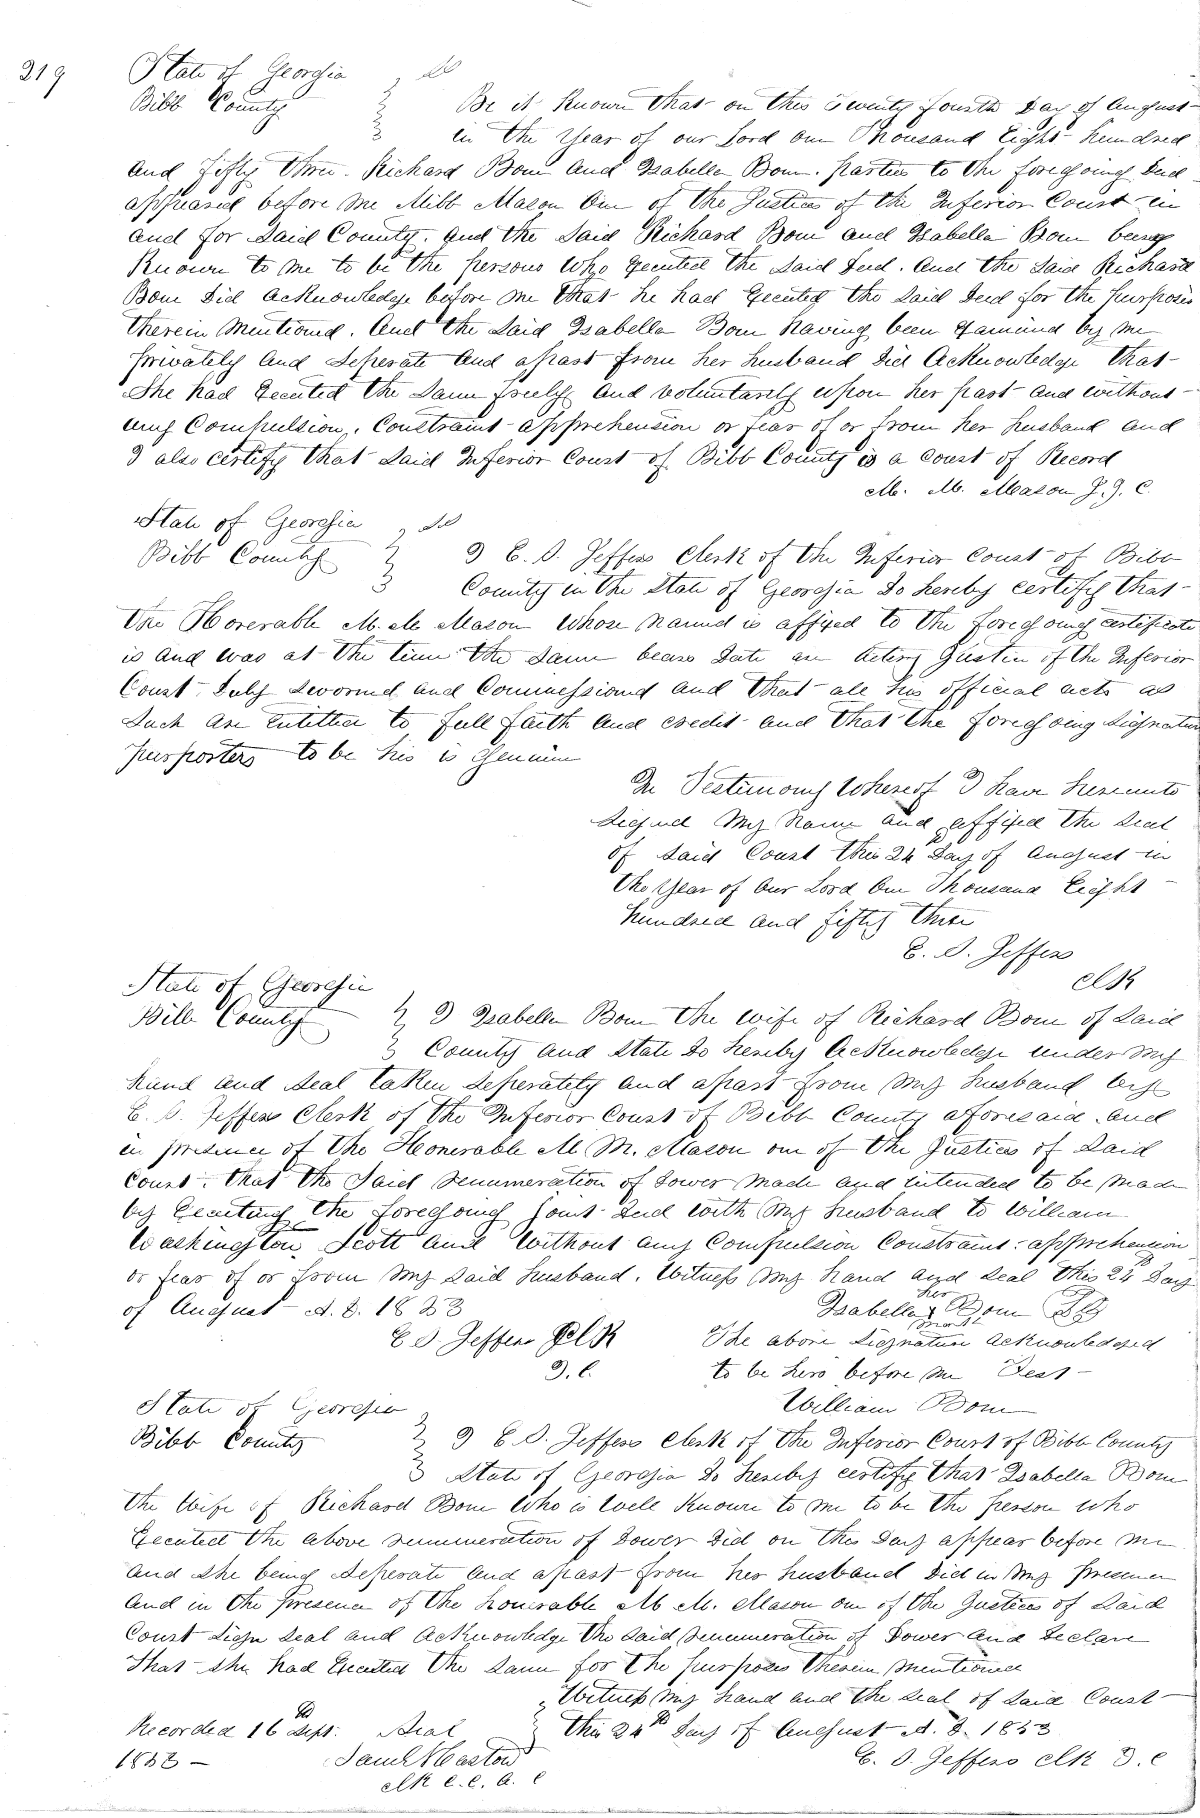 219
State of Georgia } ss
Bibb County } Be it Known that on this Twenty fourth Day of August
in the Year of our Lord One Thousand Eight hundred
and fifty three. Richard Bom and Isabella Bom. parties to the foregoing Deed
appeared before me Mibb Mason One of the Justices of the Inferior Court in
and for Said County. and the Said Richard Bom and Isabella Bom being
Known to me to be the persons Who Executed the Said Deed. and the Said Richard
Bom Did acknowledge before me that he had Executed the Said Deed for the purposes
therein Mentioned. And the Said Isabella Bom having been Examined by me
privately and Seperate and apart from her husband Did Acknowledge that
She had Executed the Same freely and voluntarily upon her part and without
any Compulsion. Constraint apprehension or fear of or from her husband and
I also certify that Said Inferior Court of Bibb County is a Court of Record
M. M. Mason J. I. C.
State of Georgia } ss
Bibb County } I E. S. Jeffers Clerk of the Inferior Court of Bibb
County in the State of Georgia Do hereby certify that
the Honerable M. M Mason Whose Named is affixed to the foregoing certificate
is and was at the time the Same bears Date an Acting Justice of the Inferior
Court Duly Sworned and Commissioned and that all his official acts as
Such are entitled to full faith and credit and that the foregoing Signature
purporters to be his is Genuine
In Testimony Whereof I have hereunto
Signed My Name and affixed the Seal
of Said Court this 24th Day of August in
the Year of Our Lord One Thousand Eight
hundred and fifty three
E. S. Jeffers
clk
State of Georgia
Bibb County } I Isabella Bom the wife of Richard Bom of Said
County and State Do hereby Acknowledge under my
hand and Seal taken Seperately and apart from my husband by
E. S. Jeffers Clerk of the Inferior Court of Bibb County aforesaid and
in presence of the Honerable M M. Mason one of the Justices of Said
Court. that the Said renumeration of Dower made and intended to be made
by Executing the foregoing joint Deed with my husband to William
Washington Scott and Without any Compulsion Constraint apprehension
or fear of or from my Said husband. Witness my hand and Seal this 24th Day
of August A. D. 1853 Isabella her x mark Bom LS
E S Jeffers Clk The above Signature acknowledged
I. C. to be hers before me Test
State of Georgia William Bom
Bibb County } I E. S. Jeffers Clerk of the Inferior Court of Bibb County
State of Georgia Do hereby certify that Isabella Bom
the Wife of Richard Bom Who is Well Known to me to be the person who
Executed the above renumeration of Dower Did on this Day appear before me
and She being Seperate and apart from her husband Did in my presence
and in the presence of the honerable M M. Mason one of the Justices of Said
Court Sign Seal and Acknowledge the Said renumeration of Dower and Declare
that She had Executed the Same for the purposes therein mentioned
Witness my hand and the Seal of Said Court
Recorded 16th Sept. Seal } this 24th Day of August A. D. 1853
1853 – Saml N Caston E. S. Jeffers clk I. C
clk C. C. A. C